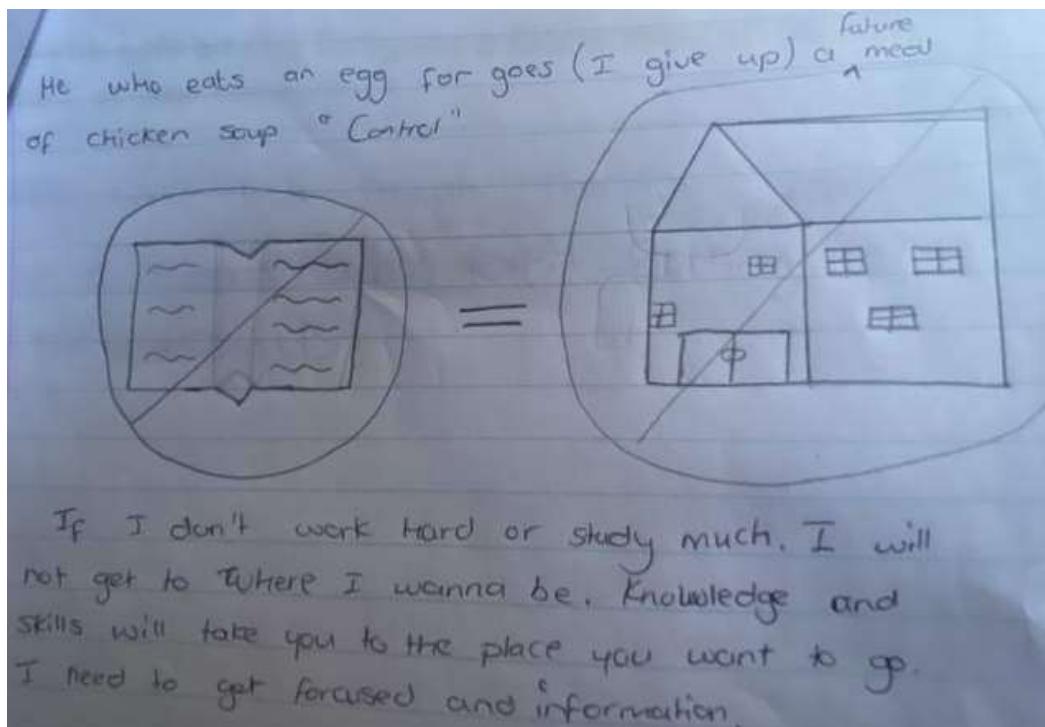 He who eats an egg for goes (I give up) a future meal
of chicken soup "Control"
If I don't work hard or study much. I will
not get to where I wanna be. Knowledge and
skills will take you to the place you want to go.
I need to get forcused and information.